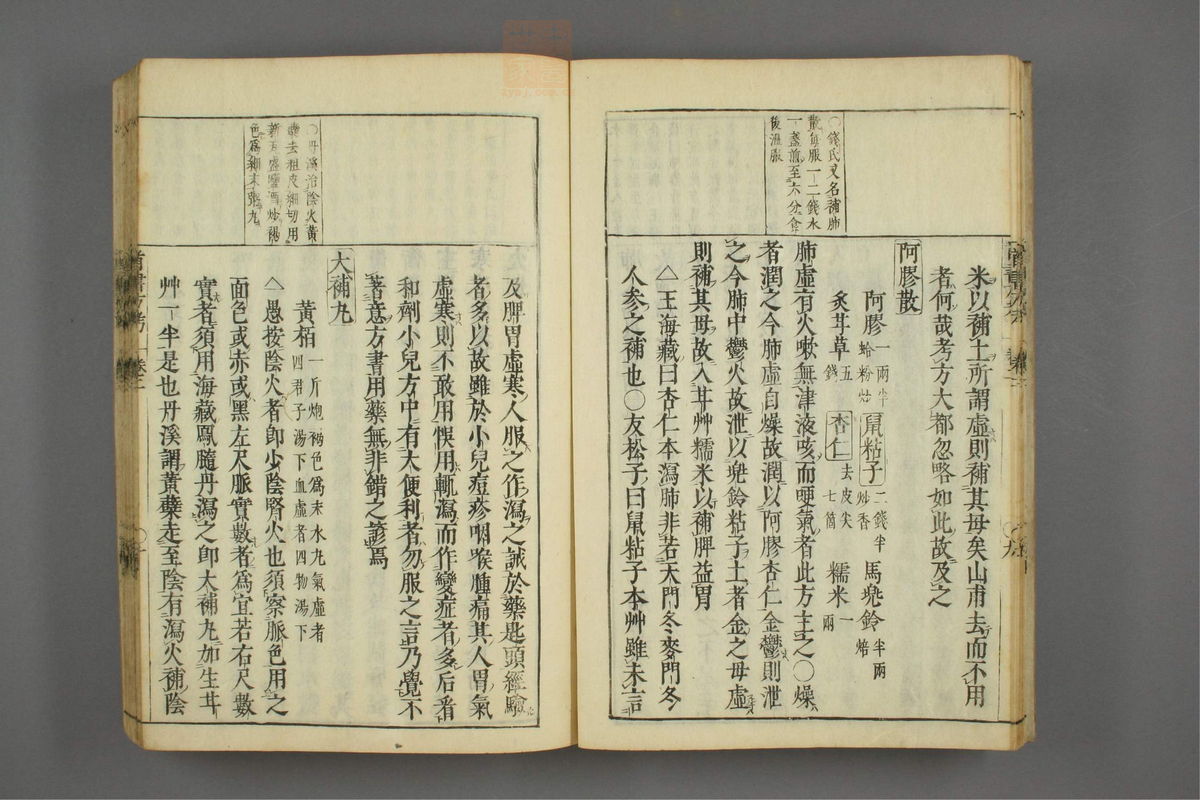 ○錢氏又名補肺
散每服一二錢水
一盞煎至六分食
後溫服
米以補土所謂虛則補其母矣山甫去而不用
者何哉考方大都忽略如此故及之
阿膠散
阿膠一兩半蛤粉炒 鼠粘子二錢半炒香 馬兜鈴半兩焙
炙甘草五錢 杏仁去皮尖七箇 糯米一兩
肺虛有火嗽無津液咳而哽氣者此方主之○燥
者潤之今肺虛自燥故潤以阿膠杏仁金鬱則泄
之今肺中鬱火故泄以兜鈴粘子土者金之母虛
則補其母故入甘艸糯米以補脾益胃
△王海藏曰杏仁本瀉肺非若天門冬麥門冬
人參之補也○友松子曰鼠粘子本艸雖未言
○丹溪治陰火黃
蘗去粗皮細切用
新瓦盛鹽酒炒褐
色為細末粥丸
及脾胃虛寒人服之作瀉之誡於藥匙頭經驗
者多以故雖於小兒痘疹咽喉腫痛其人胃氣
虛寒則不敢用悞用輒瀉而作變症者多后看
和劑小兒方中有大便利者勿服之言乃覺不
著意方書用藥無非錯之諺焉
大補丸
黃栢一斤炮褐色為末水丸氣虛者四君子湯下血虛者四物湯下
△愚按陰火者卽少陰腎火也須察脈色用之
面色或赤或黑左尺脈實數者為宜若右尺數
實者須用海藏鳳髓丹瀉之卽大補丸加生甘
艸一半是也丹溪謂黃蘗走至陰有瀉火補陰